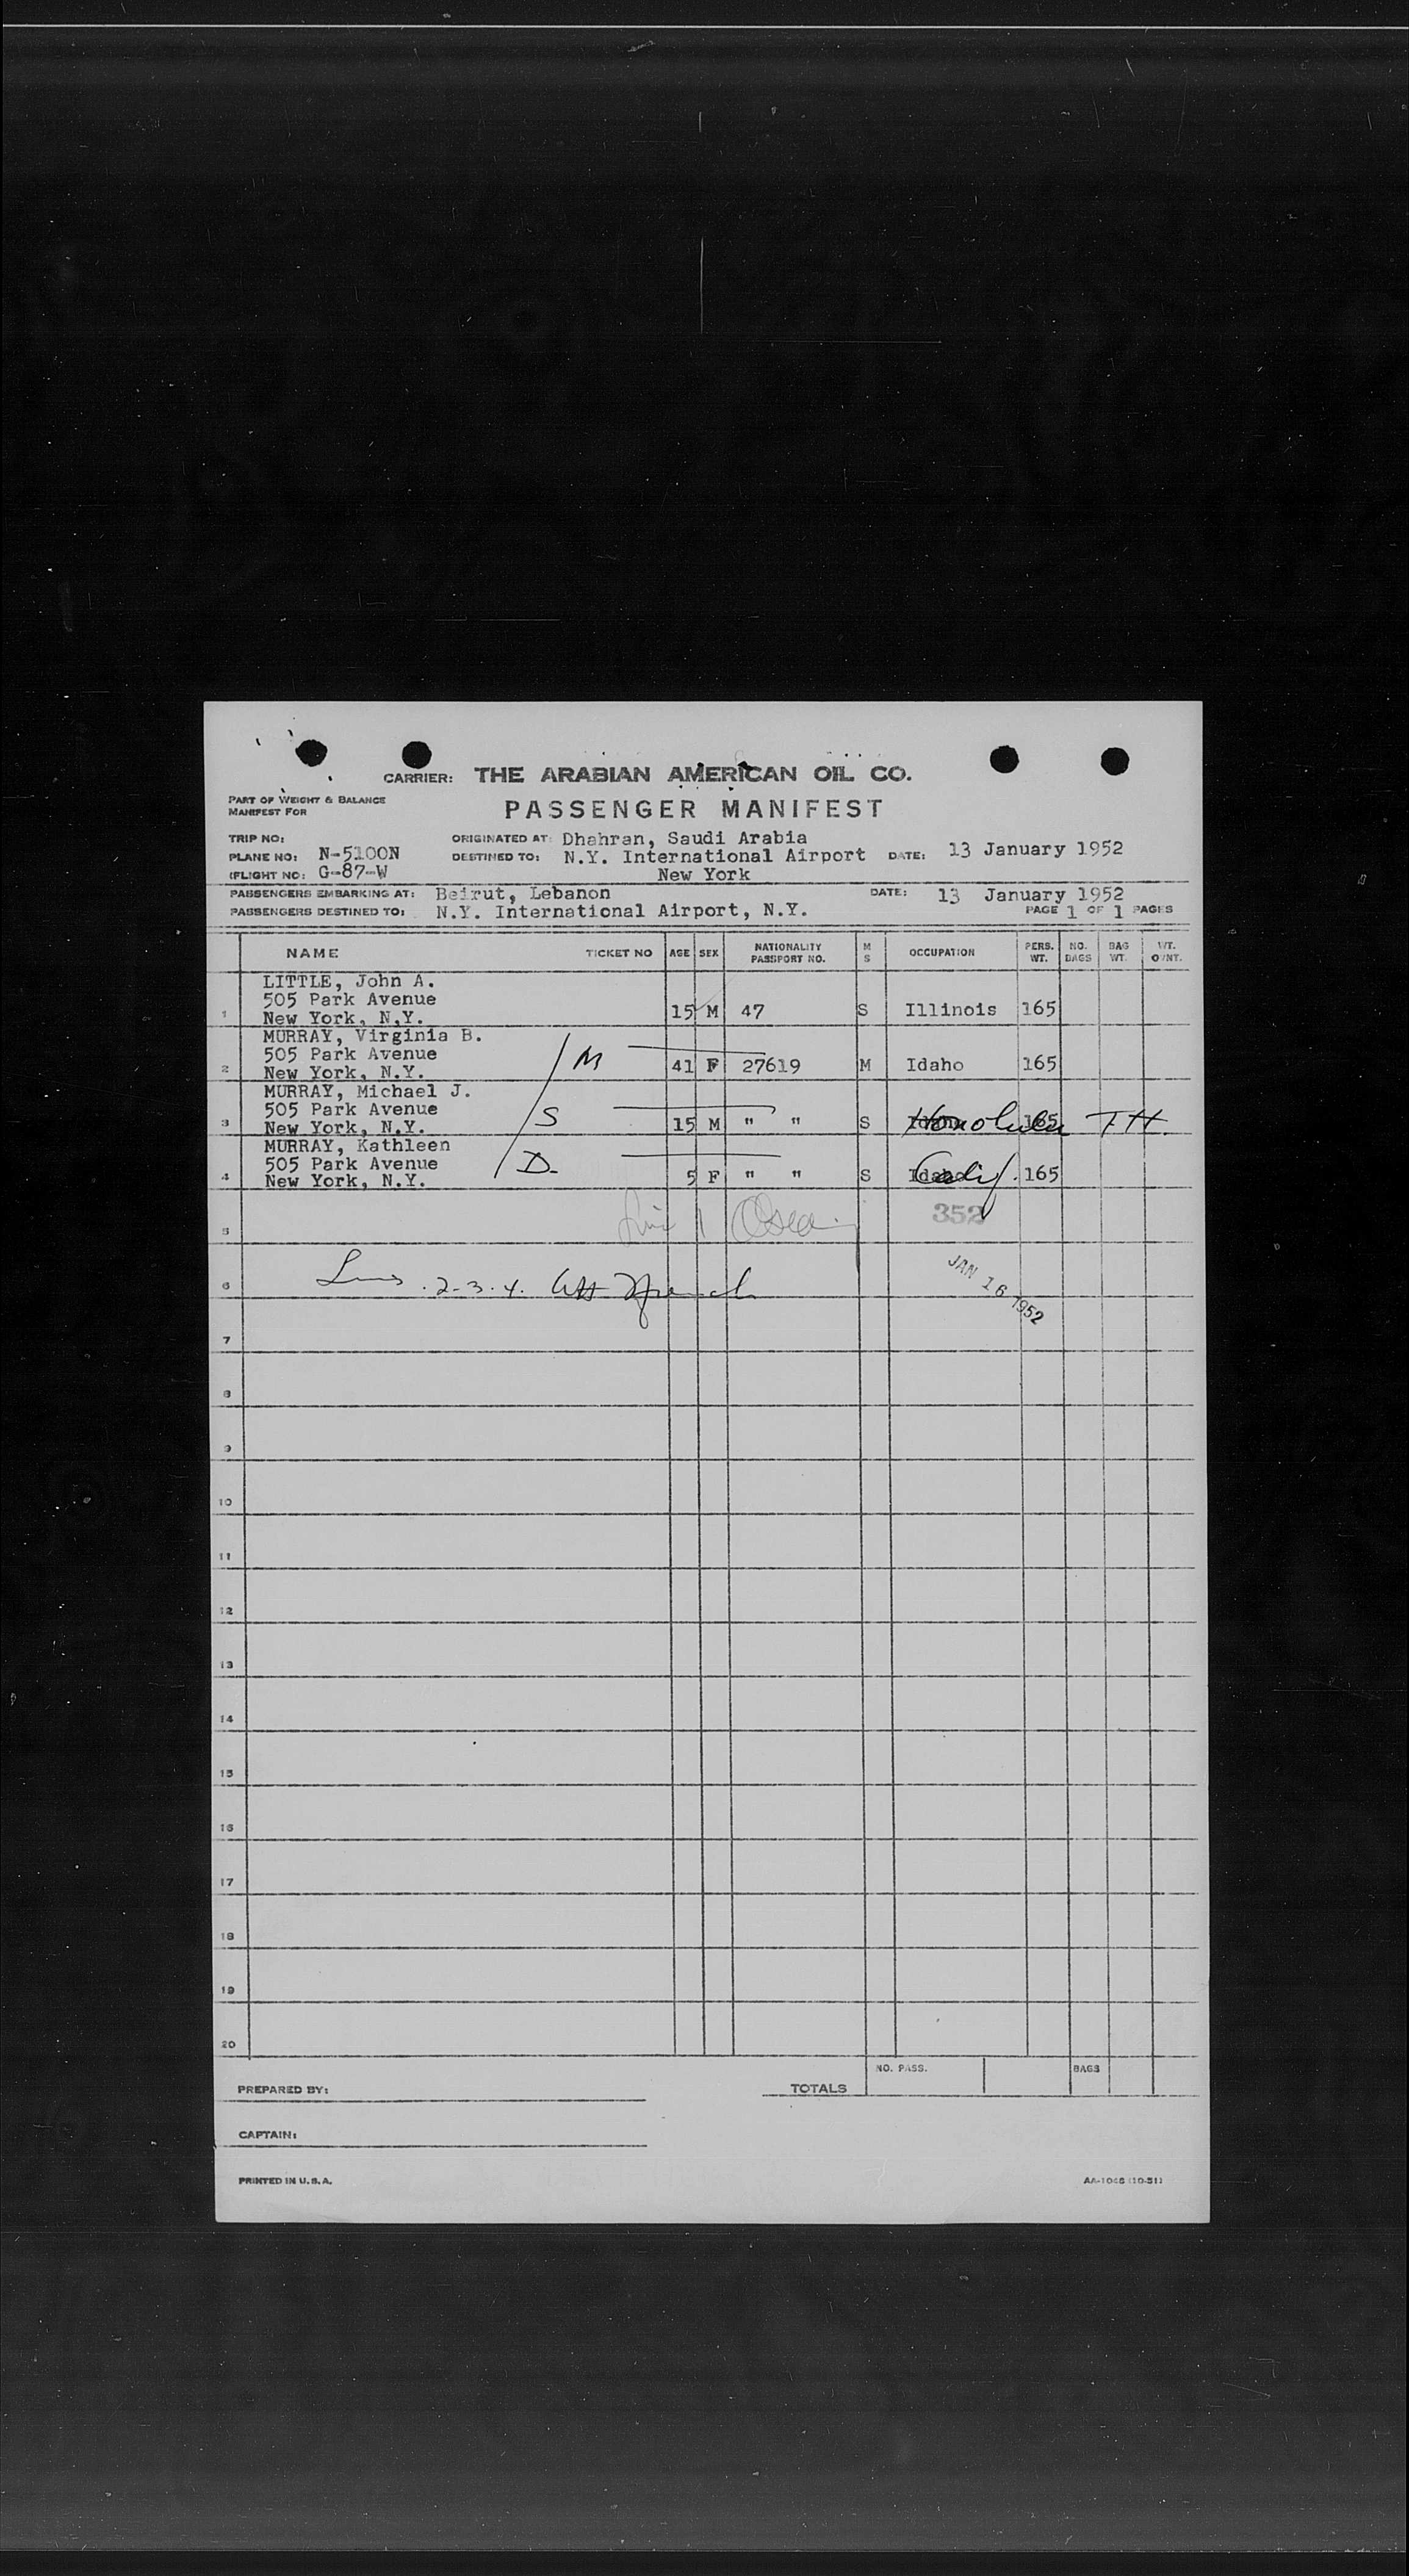 CARRIER: THE ARABIAN AMERICAN OIL CO.
PART OF WEIGHT & BALANCE
MANIFEST FOR
PASSENGER MANIFEST
TRIP NO:
ORIGINATED AT: Dhahran, Saudi Arabia
PLANE NO: N-5100N
DESTINED TO: N.Y. International Airport DATE: 13 January 1952
FLIGHT NO: G-87-W
New York
PASSENGERS EMBARKING AT: Beirut, Lebanon DATE: 13 January 1952
PASSENGERS DESTINED TO: N.Y. International Airport, N.Y. PAGE 1 OF 1 PAGES
NAME TICKET NO AGE SEX NATIONALITY PASSPORT NO. M S OCCUPATION PERS. WT. NO. BAGS BAG WT. WT.
LITTLE, John A.
505 Park Avenue
1 New York, N.Y. 15 M 47 S Illinois 165
MURRAY, Virginia B.
505 Park Avenue M
2 New York, N.Y. 41 F 27619 M Idaho 165
MURRAY, Michael J.
505 Park Avenue S
3 New York, N.Y. 15 M " " S Idaho Honolulu 165 T.H.
MURRAY, Kathleen
505 Park Avenue D.
4 New York, N.Y. 5 F " " S Idaho Calif. 165
5 352
6 2-3-4. JAN 16 1952
7
8
9
10
11
12
13
14
15
16
17
18
19
20
NO. PASS. BAGS
PREPARED BY: TOTALS
CAPTAIN:
PRINTED IN U.S.A. AA-1046 (10-51)